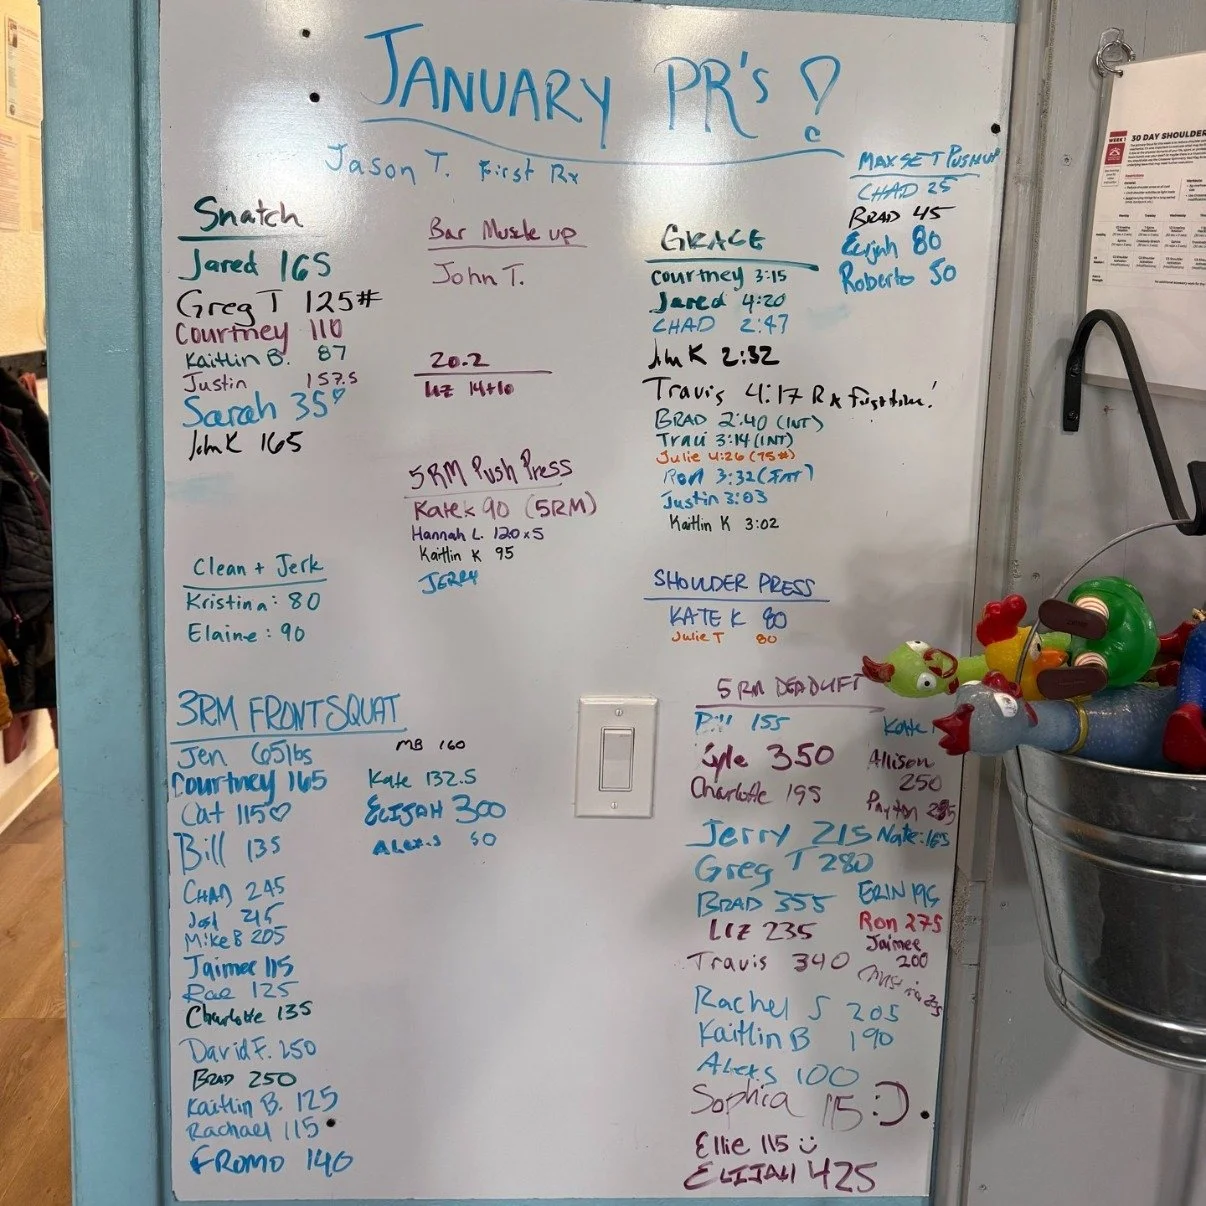 JANUARY PR'S !
Jason T. First Rx
Snatch
Jared 165
Greg T 125#
Courtney 110
Kaitlin B. 87
Justin 157.5
Sarah 35♡
John K 165
Clean + Jerk
Kristina: 80
Elaine: 90
Bar Muscle up
John T.
20.2
LIZ 14+10
5RM Push Press
Kate K 90 (5RM)
Hannah L. 120x5
Kaitlin K 95
JERRY
GRACE
Courtney 3:15
Jared 4:20
CHAD 2:47
John K 2:32
Travis 4:17 Rx First time!
BRAD 2:40 (INT)
Traci 3:14 (INT)
Julie 4:26 (75#)
Ron 3:32 (INT)
Justin 3:03
Kaitlin K 3:02
MAX SET PUSHUP
CHAD 25
BRAD 45
Elijah 80
Roberto 50
SHOULDER PRESS
KATE K 80
Julie T 80
3RM FRONT SQUAT
Jen 65lbs
Courtney 165
Cat 115♡
Bill 135
CHAD 245
215
Mike B 205
Jaimee 115
Rae 125
Charlotte 135
David F. 250
BRAD 250
Kaitlin B. 125
Rachael 115
FROMO 140
MB 160
Kate 132.5
ELIJAH 300
ALEXIS 50
5RM DEADLIFT
Bill 155
350
Charlotte 195
Jerry 215
Greg T 280
BRAD 355
LIZ 235
Travis 340
Rachel S 205
Kaitlin B 190
ALEXIS 100
Sophia 115 :)
Ellie 115 ü
ELIJAH 425
Kate
Allison
250
Payton
Nate: 165
ERIN 195
Ron 275
Jaimee
200
WEEK 1
30 DAY SHOULDER